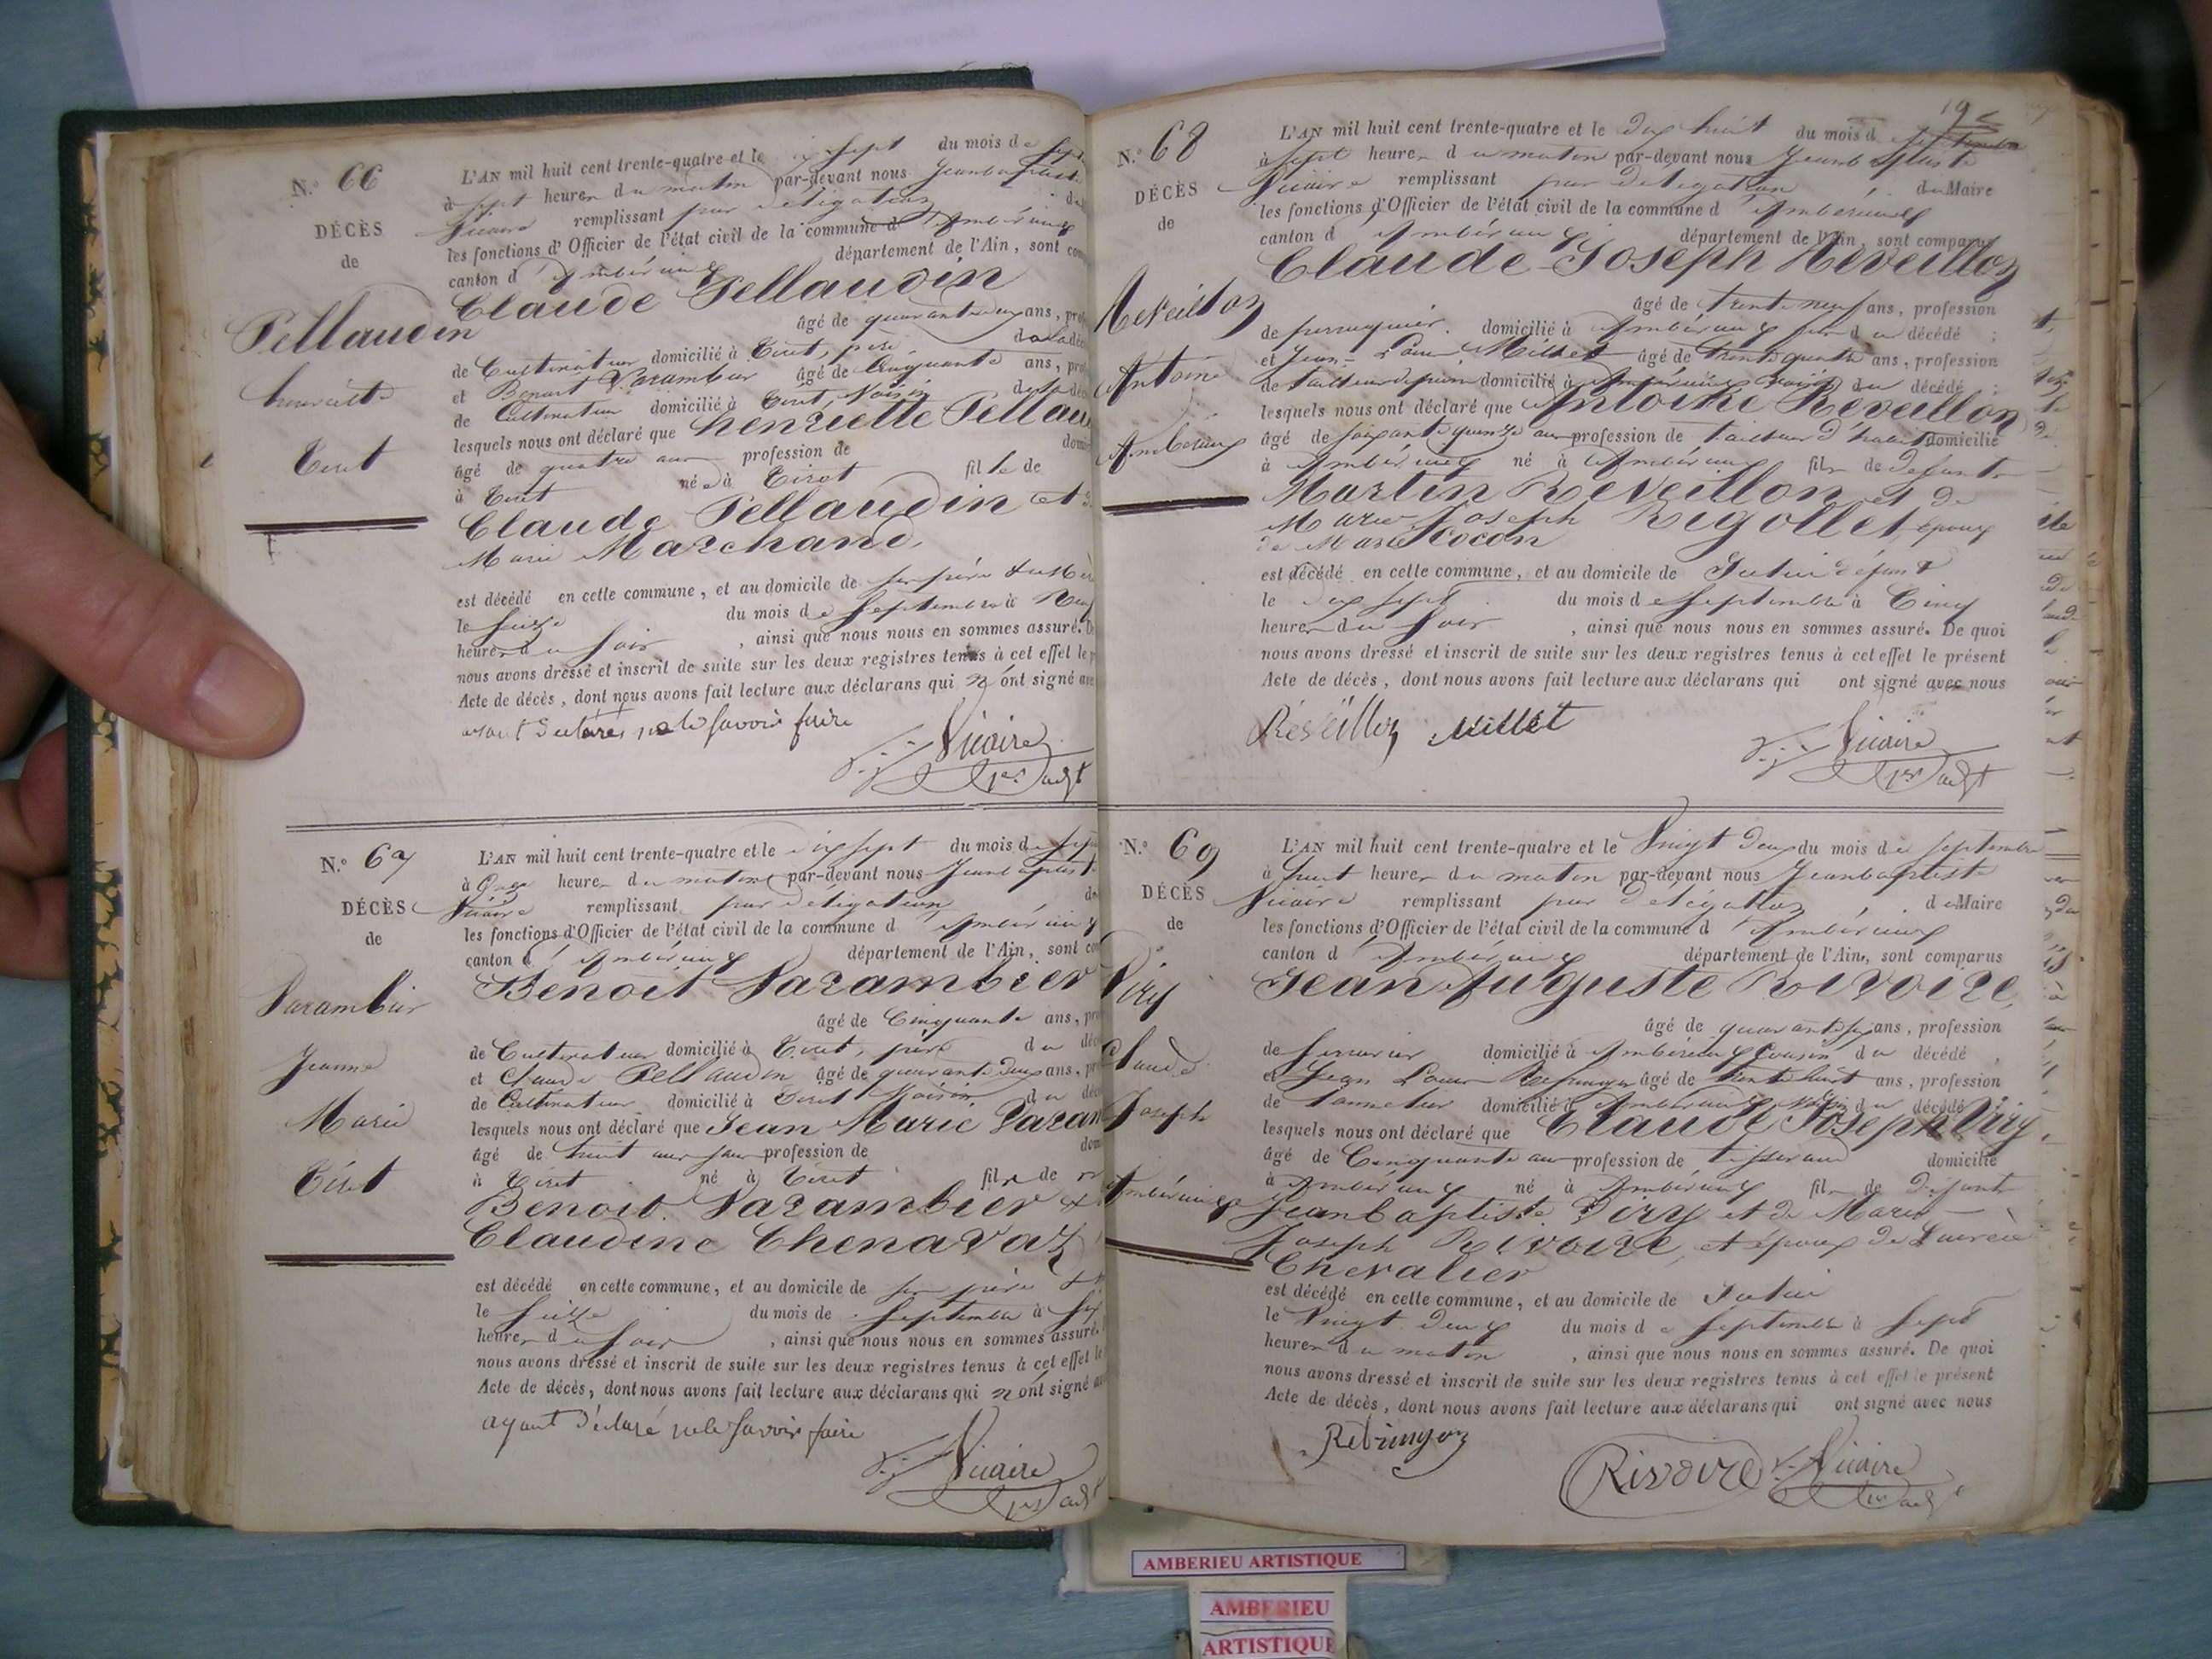 N.º 66
DÉCÈS
de
Pellaudin
henriette
Tiret
L'AN mil huit cent trente-quatre et le dix sept du mois de
à sept heures du matin par-devant nous Jeanbaptiste
Vicaire remplissant par délégation
les fonctions d'Officier de l'état civil de la commune d'Ambérieux
canton d'Ambérieux département de l'Ain, sont
Claude Pellaudin
âgé de quarante deux ans,
de Cultivateur domicilié à Tiret, père de la
et Benoit Varambier âgé de Cinquante ans,
de Cultivateur domicilié à Tiret, Voisin
lesquels nous ont déclaré que henriette
âgé de quatre ans profession de
à Tiret née à Tiret fille de
Claude Pellaudin et
Marie Marchand,
est décédé en cette commune, et au domicile de son père &
le Seize du mois de Septembre à
heures du Soir, ainsi que nous nous en sommes assuré.
nous avons dressé et inscrit de suite sur les deux registres tenus à cet effet le
Acte de décès, dont nous avons fait lecture aux déclarans qui n'ont signé
ayant déclaré ne le Savoir faire
Vicaire
1er adjt
N.º 67
DÉCÈS
de
Varambier
Jeanne
Marie
Tiret
L'AN mil huit cent trente-quatre et le dix sept du mois de
à Onze heures du matin par-devant nous Jeanbaptiste
Vicaire remplissant par délégation
les fonctions d'Officier de l'état civil de la commune d'Ambérieux
canton d'Ambérieux département de l'Ain, sont
Benoit Varambier
âgé de Cinquante ans,
de Cultivateur domicilié à Tiret, père du
et Claude Pellaudin âgé de quarante deux ans,
de Cultivateur domicilié à Tiret Voisin du
lesquels nous ont déclaré que Jean Marie
âgé de huit ans profession de
à Tiret né à Tiret fils de
Benoit Varambier &
Claudine Chenavaz
est décédé en cette commune, et au domicile de son père &
le Seize du mois de Septembre à
heures du Soir, ainsi que nous nous en sommes assuré.
nous avons dressé et inscrit de suite sur les deux registres tenus à cet effet le
Acte de décès, dont nous avons fait lecture aux déclarans qui n'ont signé
ayant déclaré ne le Savoir faire
Vicaire
1er adjt
N.º 68
DÉCÈS
de
Reveillon
Antoine
Amberieux
L'AN mil huit cent trente-quatre et le dix huit du mois de Septembre
à sept heures du matin par-devant nous Jeanbaptiste
Vicaire remplissant par délégation du Maire
les fonctions d'Officier de l'état civil de la commune d'Ambérieux
canton d'Ambérieux département de l'Ain, sont comparus
Claude-Joseph Reveillon
âgé de trente neuf ans, profession
de perruquier domicilié à Ambérieux du décédé;
et Jean-Louis Millet âgé de trente quatre ans, profession
de domicilié à Ambérieux Voisin du décédé;
lesquels nous ont déclaré que Antoine Reveillon
âgé de soixante quinze ans profession de tailleur d'habits domicilié
à Ambérieux né à Ambérieux fils de defunts
Martin Reveillon et de
Marie Joseph Rigollet, époux
de Marie Cocon
est décédé en cette commune, et au domicile de
le dix sept du mois de Septembre à Cinq
heures du Soir, ainsi que nous nous en sommes assuré. De quoi
nous avons dressé et inscrit de suite sur les deux registres tenus à cet effet le présent
Acte de décès, dont nous avons fait lecture aux déclarans qui ont signé avec nous
Réveillon Millet
Vicaire
1er adjt
N.º 69
DÉCÈS
de
Viry
Claude
Joseph
Ambérieux
L'AN mil huit cent trente-quatre et le Vingt deux du mois de Septembre
à huit heures du matin par-devant nous Jeanbaptiste
Vicaire remplissant par délégation du Maire
les fonctions d'Officier de l'état civil de la commune d'Ambérieux
canton d'Ambérieux département de l'Ain, sont comparus
Jean Auguste Rivoire,
âgé de quarante six ans, profession
de Serrurier domicilié à Ambérieux Cousin du décédé,
et Jean Louis âgé de trente huit ans, profession
de tanneur domicilié à Ambérieux Voisin du décédé
lesquels nous ont déclaré que Claude Joseph Viry,
âgé de Cinquante ans profession de tisserand domicilié
à Ambérieux né à Ambérieux fils de défunts
Jeanbaptiste Viry et de Marie
Joseph Rivoire, et époux de
Chevalier
est décédé en cette commune, et au domicile de
le Vingt deux du mois de Septembre à Sept
heures du matin, ainsi que nous nous en sommes assuré. De quoi
nous avons dressé et inscrit de suite sur les deux registres tenus à cet effet le présent
Acte de décès, dont nous avons fait lecture aux déclarans qui ont signé avec nous
Rivoire Vicaire
1er adjt
AMBERIEU ARTISTIQUE
AMBERIEU
ARTISTIQUE